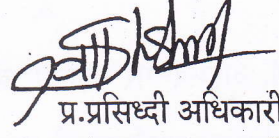 प्र.प्रसिध्दी अधिकारी